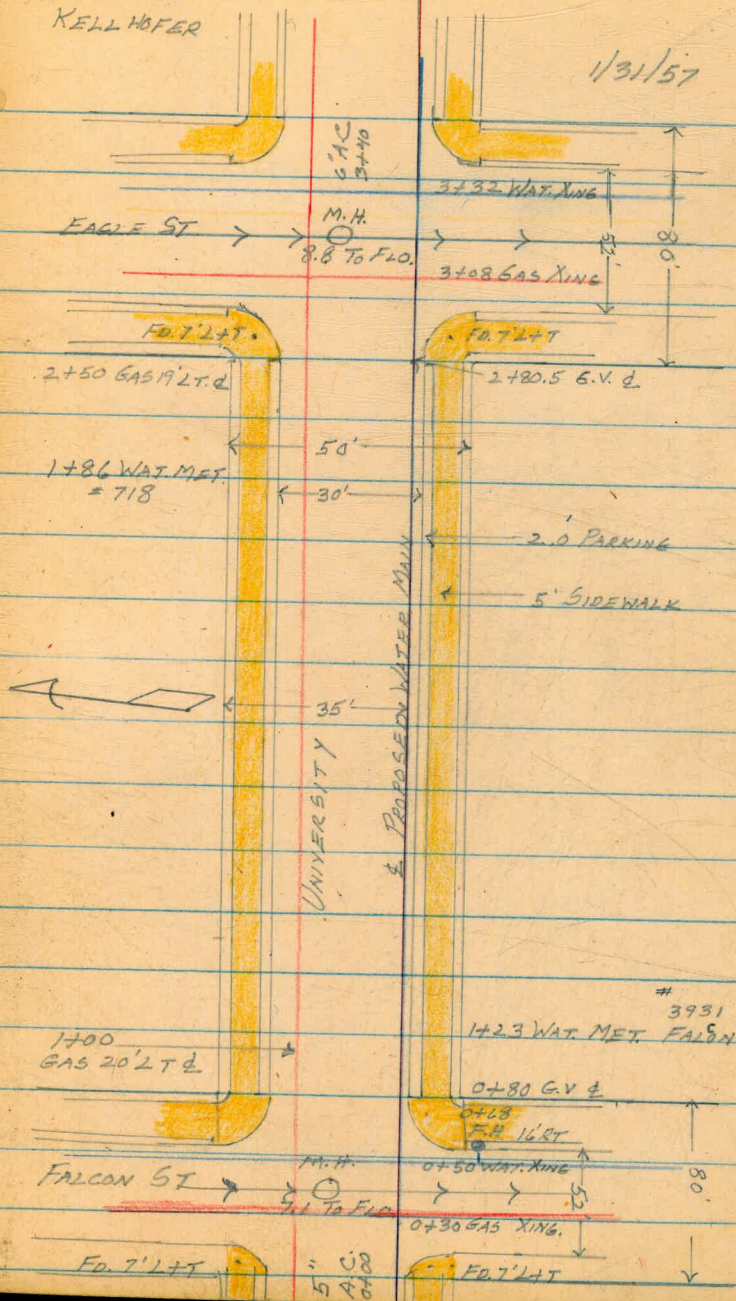 KELLHOFER
1/31/57
6" A.C.
3+40
3+32 WAT. XING
EAGLE ST
M.H.
8.8 TO FLO.
52'
80'
3+08 GAS XING
FD. 7' L+T
FD. 7' L+T
2+50 GAS 19' LT. ₵
2+80.5 G.V. ₵
50'
1+86 WAT. MET.
= 718
30'
2.0 PARKING
5' SIDEWALK
35'
UNIVERSITY
₵ PROPOSED WATER MAIN
#
3931
1+23 WAT. MET. FALCON
1+00
GAS 20' LT ₵
0+80 G.V ₵
0+68
F.H 16' RT.
FALCON ST
M.H.
7.1 TO FLO.
0+50 WAT. XING
52'
80'
0+30 GAS XING.
FD. 7' L+T
5"
A.C.
0+00
FD. 7' L+T